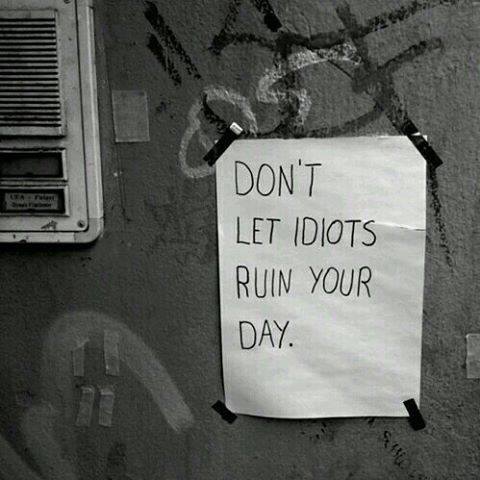 DON'T
LET IDIOTS
RUIN YOUR
DAY.